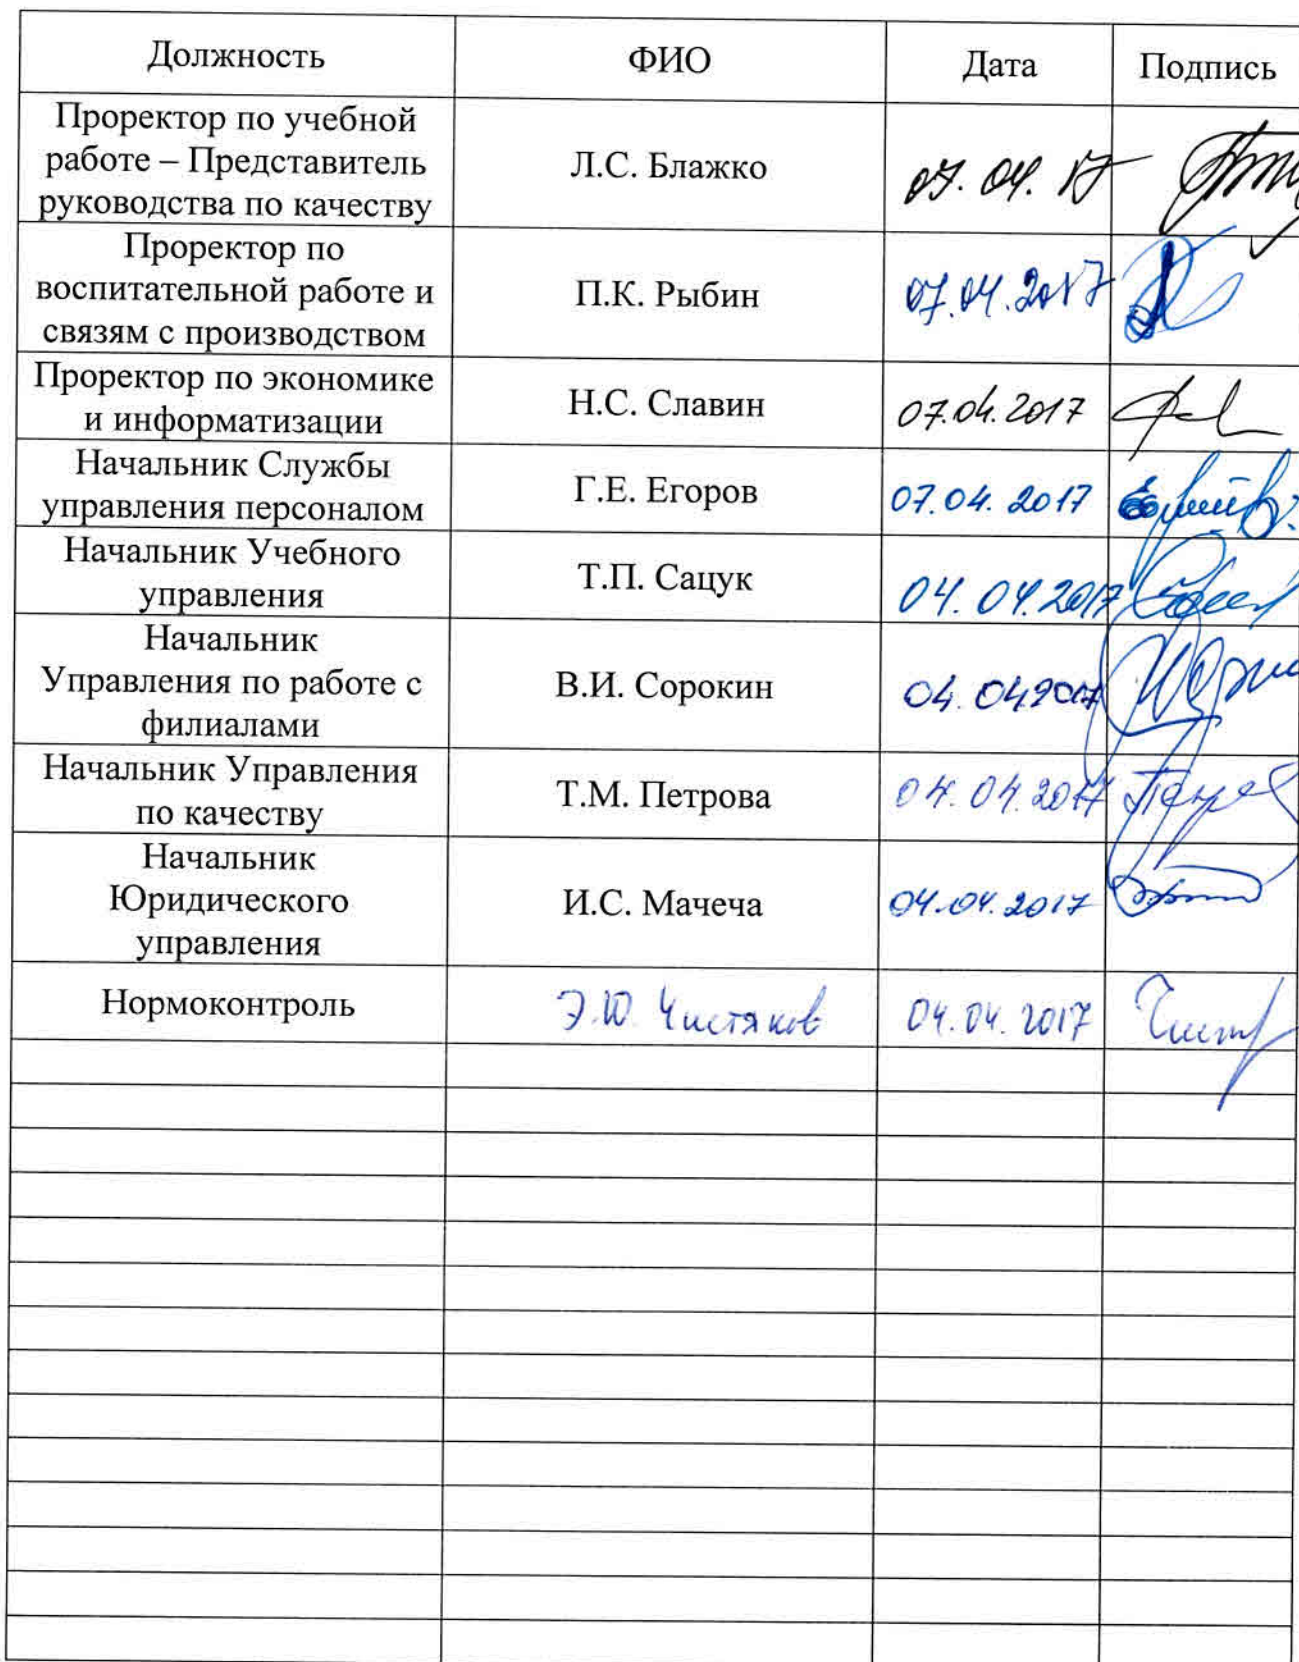 Должность ФИО Дата Подпись
Проректор по учебной
работе – Представитель
руководства по качеству
Л.С. Блажко 07.04.17
Проректор по
воспитательной работе и
связям с производством
П.К. Рыбин 07.04.2017
Проректор по экономике
и информатизации
Н.С. Славин 07.04.2017
Начальник Службы
управления персоналом
Г.Е. Егоров 07.04.2017
Начальник Учебного
управления
Т.П. Сацук 04.04.2017
Начальник
Управления по работе с
филиалами
В.И. Сорокин 04.042017
Начальник Управления
по качеству
Т.М. Петрова 04.04.2017
Начальник
Юридического
управления
И.С. Мачеча 04.04.2017
Нормоконтроль Э.Ю. Чистяков 04.04.2017